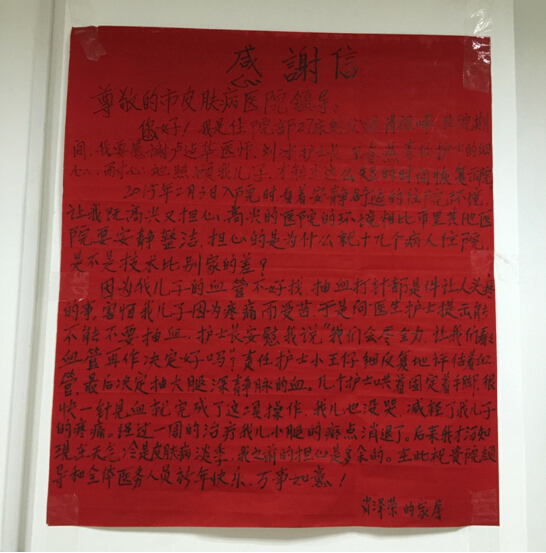 感謝信
尊敬的市皮肤病医院领导:
您好!我是住院部27床
间,我要感谢卢廷华医师,刘 护士长
心,耐心 照顾我儿子,才
2015年2月3日入院时看着安静舒适的住院环境,
让我既高兴又担心,高兴的医院的环境相比市里其他医
院要安静整洁,担心的是为什么就十几个病人住院,
是不是技术比别家的差?
因为我儿子的血管不好找,抽血打针都是件让人头痛
的事,害怕我儿子因为疼痛而受苦,于是向医生护士提出能
不能不要抽血,护士长安慰我说“我们会尽全力,让我们看
血管再作决定好吗?”责任护士小王仔细反复地评估着血
管,最后决定抽大腿深静脉的血,几个护士 固定着手脚,很
快一针见血就完成了这项操作,我儿也没哭,减轻了我儿子
的疼痛。经过一周的治疗我儿小腿的瘀点消退了。后来我才得知
现在天气冷是皮肤病淡季,我之前的担心是多余的。在此祝贵院领
导和全体医务人员新年快乐,万事如意!
肖泽荣的家属